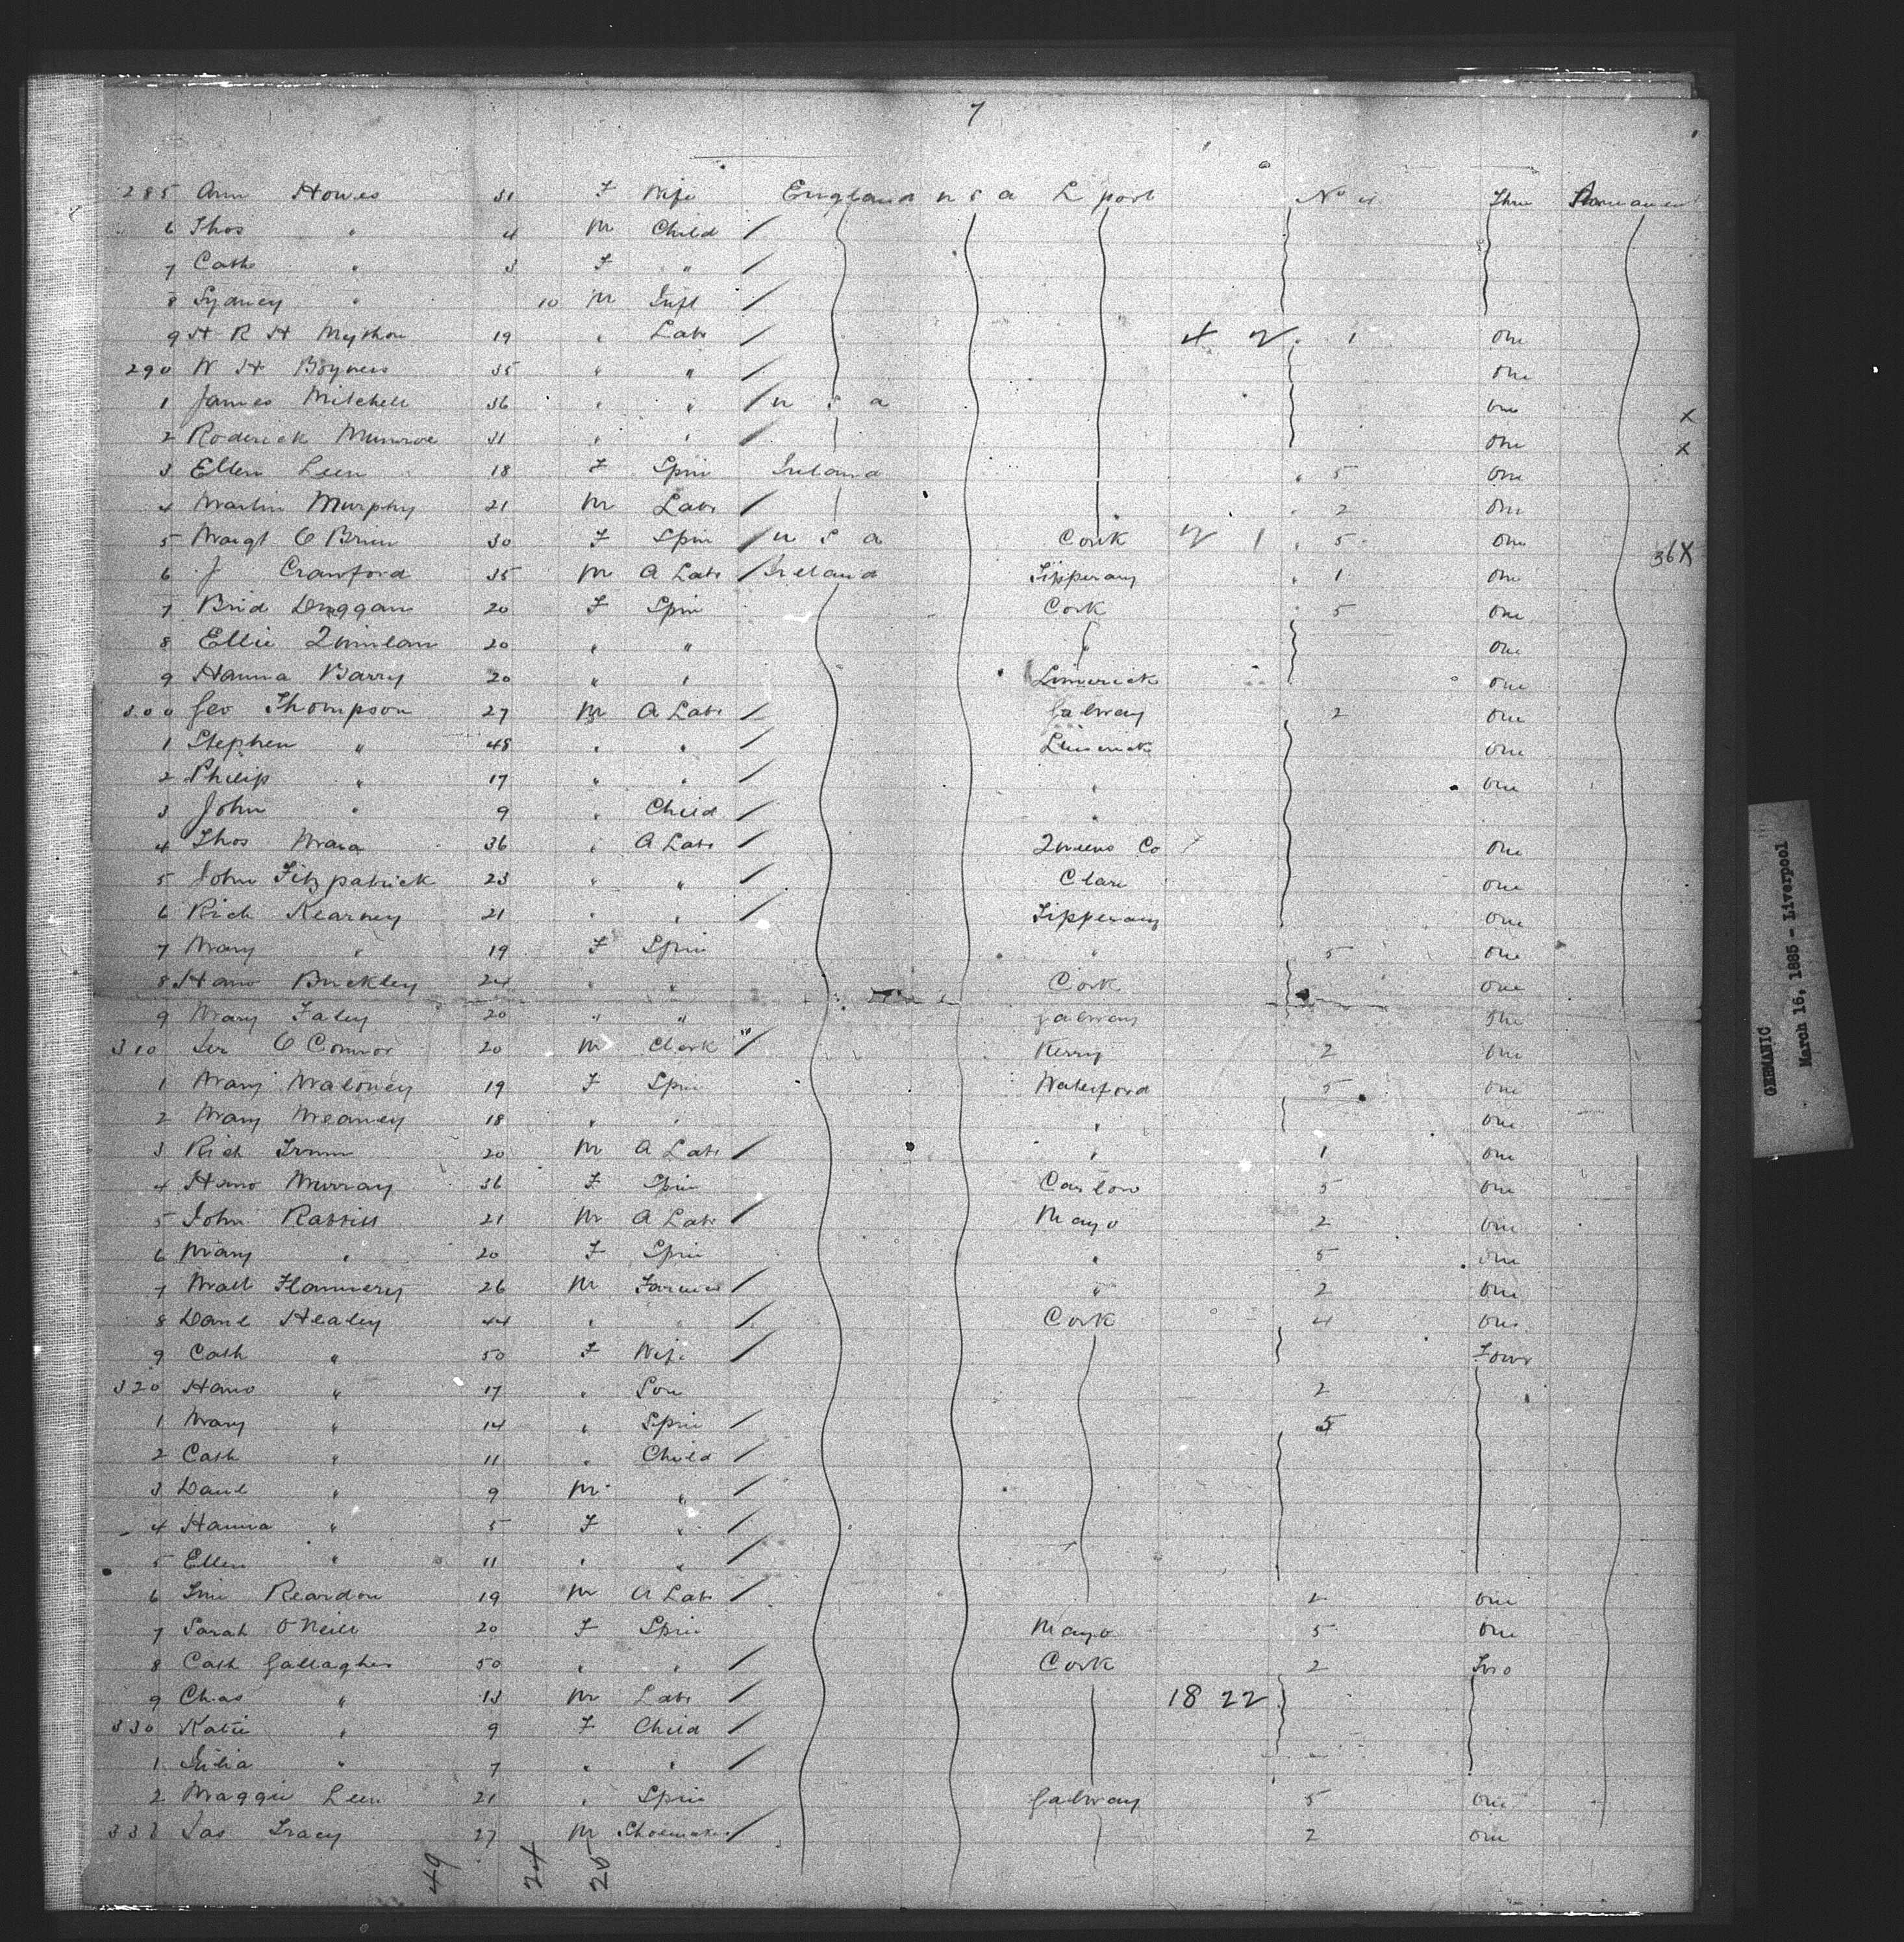 7
285 Ann Howes 31 F Wife England U S A L pool No 4 Three Permanent
6 Thos " 4 M Child /
7 Cath " 3 F " /
8 Sydney " 10 M Inft /
9 H R H 19 " Labr / 1 One
290 W H 35 " " / One
1 James Mitchell 36 " " / U S A One X
2 Roderick Munroe 31 " " / One X
3 Ellen Leen 18 F Spin Ireland " 5 One
4 Martin Murphy 21 M Labr / " 2 One
5 Margt O Brien 30 F Spin / U S A Cork " 5 One
36X
6 J Crawford 35 M A Labr / Ireland Tipperary " 1 One
7 Brid Duggan 20 F Spin Cork " 5 One
8 Ellie Quinlan 20 " " " One
9 Hanna Barry 20 " " Limerick One
300 Geo Thompson 27 M A Labr / Galway 2 One
1 Stephen " 48 " " / Limerick One
2 Philip " 17 " " / " One
3 John " 9 " Child / "
4 Thos Mara 36 " A Labr / Queens Co One
5 John Fitzpatrick 23 " " / Clare One
6 Rich Kearney 21 " " / Tipperary One
7 Mary " 19 F Spin " 5 One
8 Hano Buckley 24 " " Cork One
9 Mary Faley 20 " " Galway One
310 Jer O Connor 20 M Clerk / Kerry 2 One
1 Mary Maloney 19 F Spin Waterford 5 One
2 Mary Meaney 18 " " " One
3 Rich 20 M A Labr / " 1 One
4 Hano Murray 36 F Spin Carlow 5 One
5 John Rabbitt 21 M A Labr / Mayo 2 One
6 Mary " 20 F Spin " 5 One
7 Matt Flannery 26 M Farmer / " 2 One
8 Danl Healey 44 " " / Cork 4 One
9 Cath " 50 F Wife / Four
320 Hano " 17 " Son 2
1 Mary " 14 " Spin / 5
2 Cath " 11 " Child /
3 Danl " 9 M " /
4 Hanna " 5 F " /
5 Ellen " 11 " " /
6 Reardon 19 M A Labr / 2 One
7 Sarah O Neill 20 F Spin Mayo 5 One
8 Cath Gallagher 50 " " / Cork 2 Two
9 Chas " 13 M Labr / 18 22
330 Katie " 9 F Child /
1 Julia " 7 " " /
2 Maggie Leen 21 " Spin Galway 5 One
333 Jas Tracy 27 M Shoemaker / 2 One
49 24 25
GERMANIC
March 16, 1885 - Liverpool